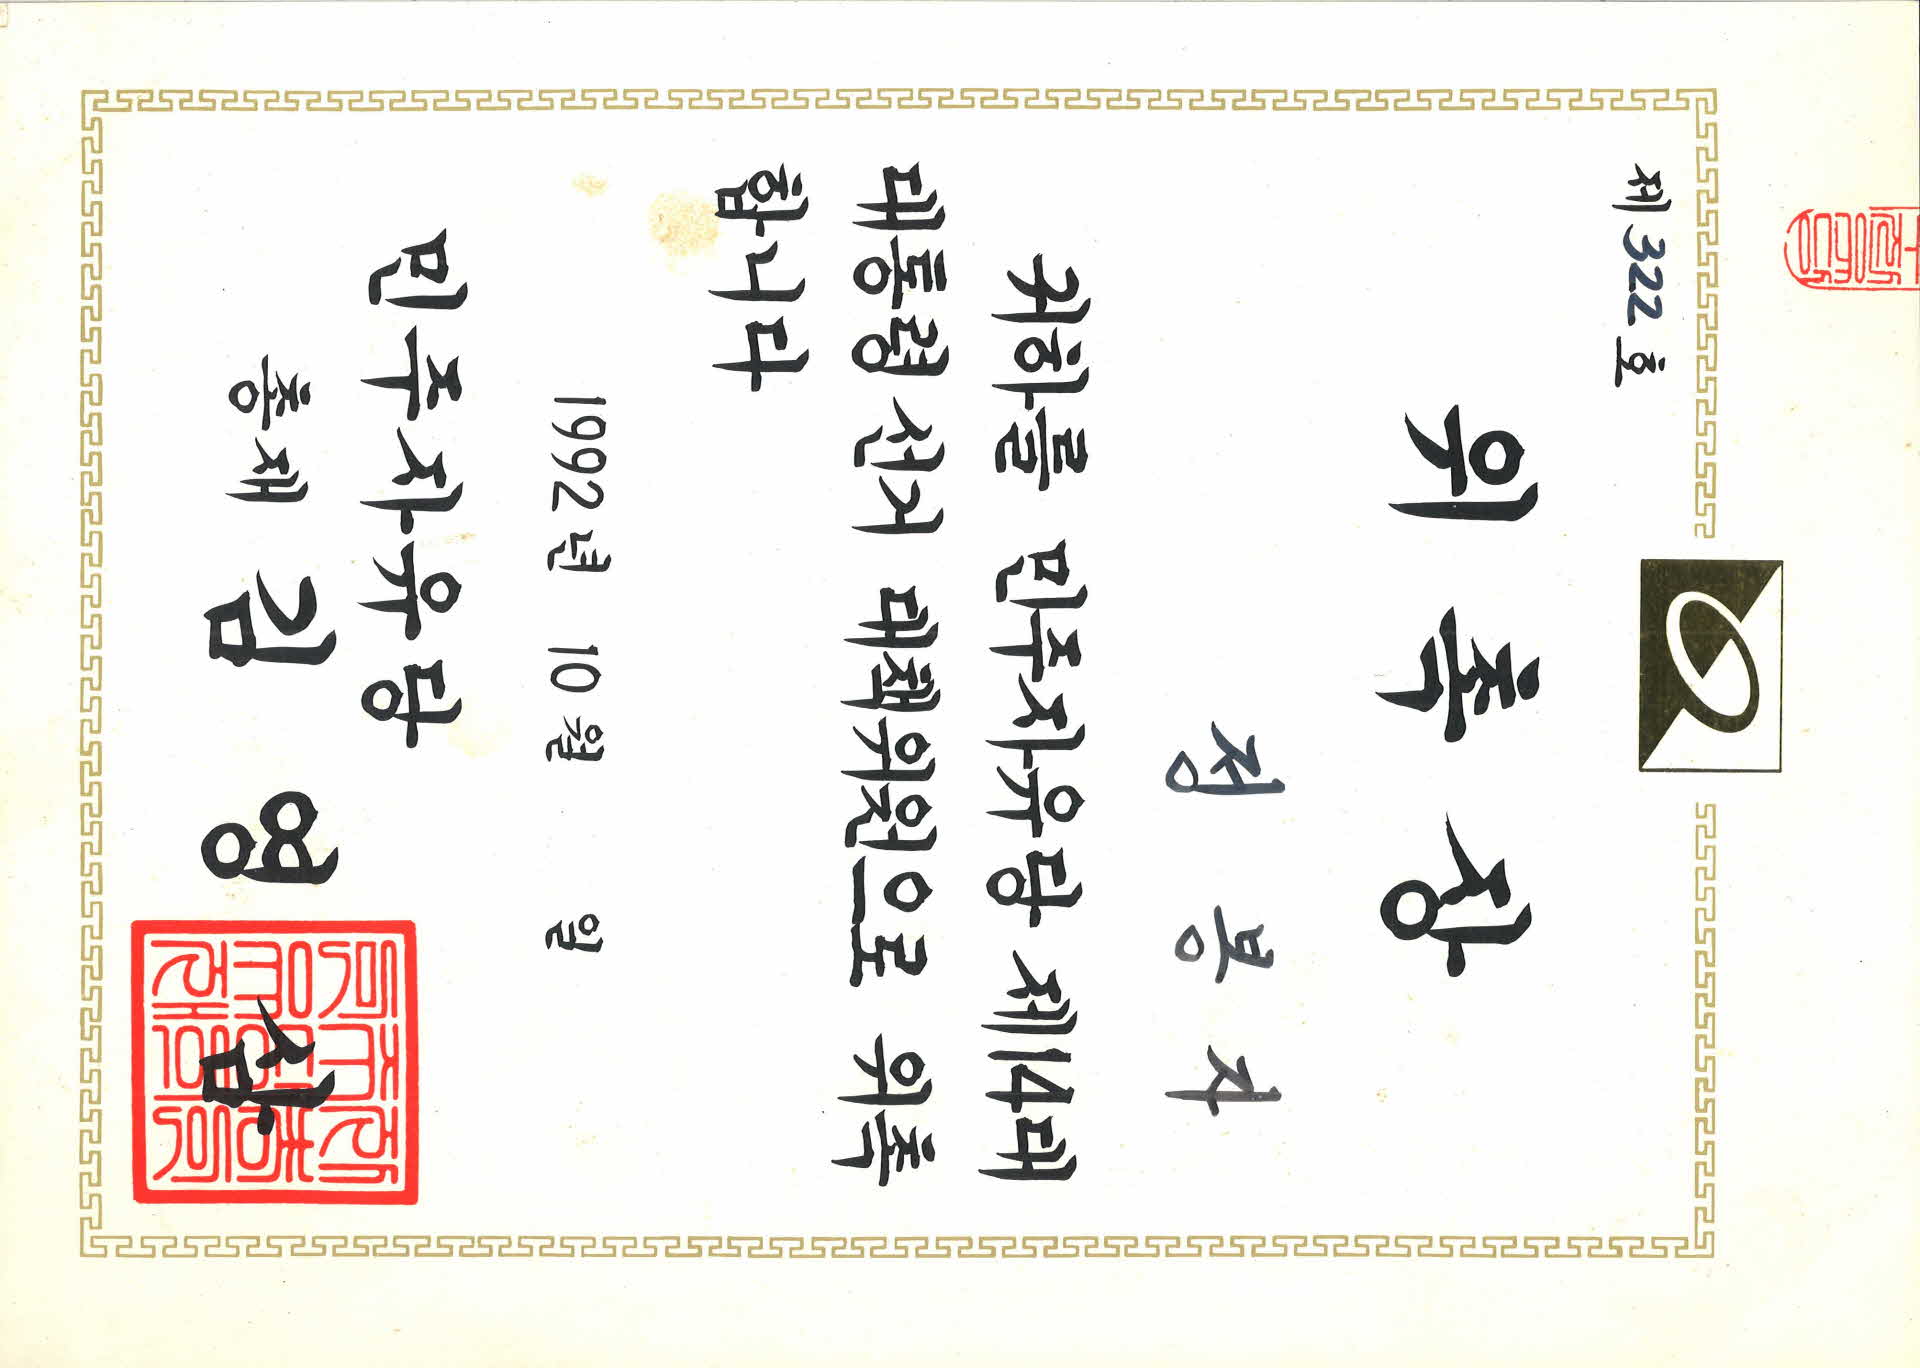 제 322 호
위 촉 장
정 봉 자
귀하를 민주자유당 제14대
대통령 선거 대책위원으로 위촉
합니다
1992년 10월 일
민주자유당
총재 김 영 삼